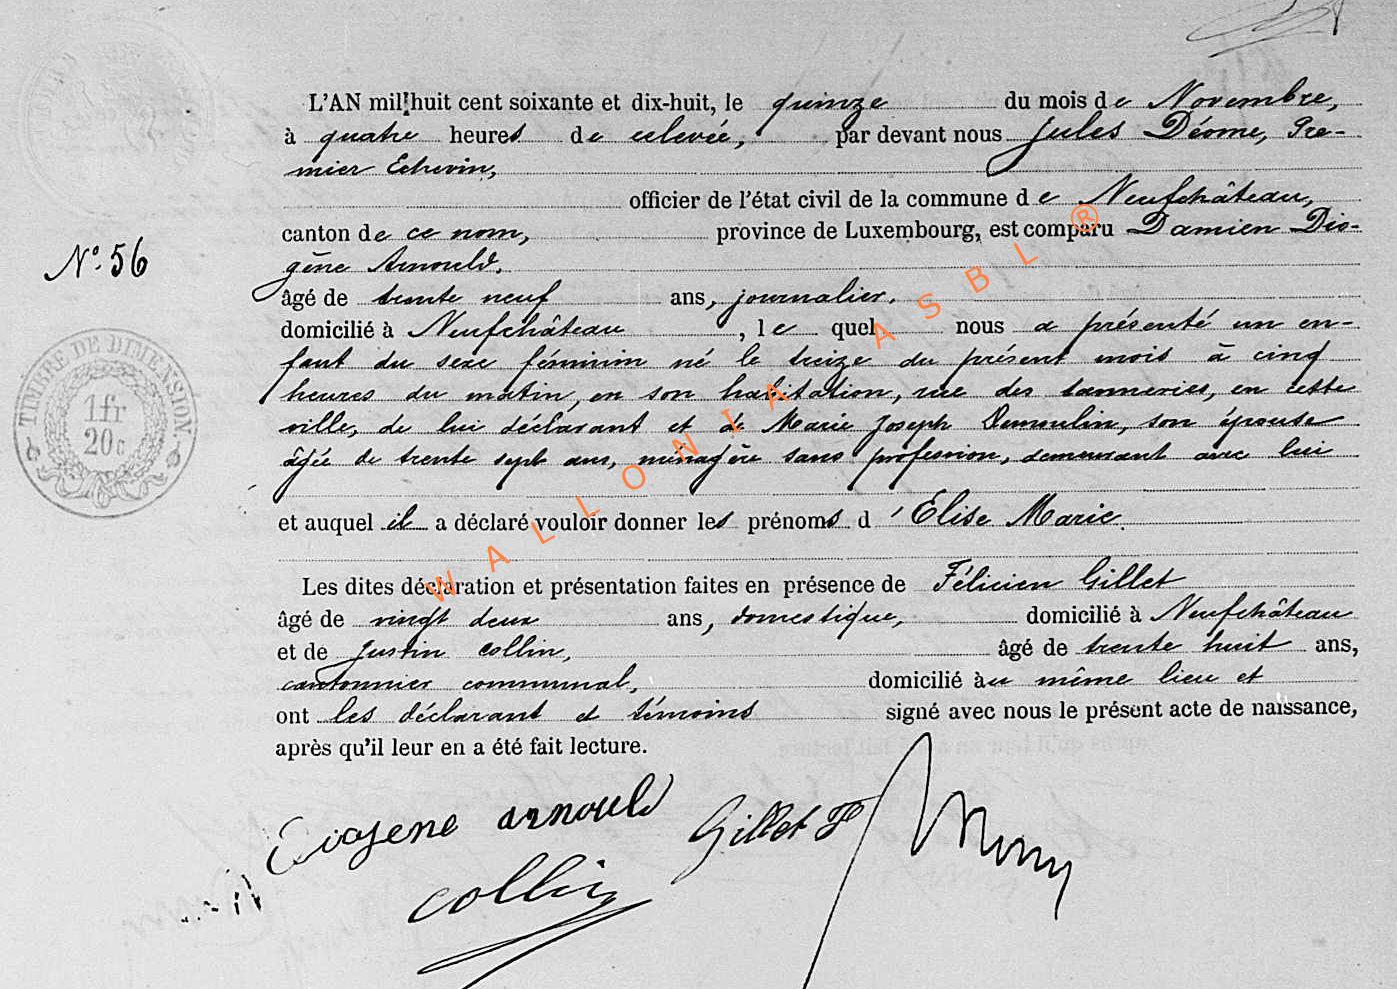 L'AN mil huit cent soixante et dix-huit, le quinze du mois de Novembre,
à quatre heures de relevée, par devant nous Jules Déome, Pre-
mier Echevin,
officier de l'état civil de la commune de Neufchâteau,
canton de ce nom, province de Luxembourg, est comparu Damien Dio-
gène Arnould,
Nº 56
âgé de trente neuf ans, journalier,
domicilié à Neufchâteau, le quel nous a présenté un en-
fant du sexe féminin né le treize du présent mois à cinq
heures du matin, en son habitation, rue des tanneries, en cette
ville, de lui déclarant et de Marie Joseph Demoulin, son épouse
âgée de trente sept ans, ménagère sans profession, demeurant avec lui
et auquel il a déclaré vouloir donner les prénoms d'Elise Marie.
Les dites déclaration et présentation faites en présence de Félicien Gillet
âgé de vingt deux ans, domestique, domicilié à Neufchâteau
et de Justin Collin, âgé de trente huit ans,
cantonnier communal, domicilié au même lieu et
ont les déclarant et témoins signé avec nous le présent acte de naissance,
après qu'il leur en a été fait lecture.
TIMBRE DE DIMENSION.
1fr
20c
WALLONIA ASBL ®
arnould
Gillet F
Collin